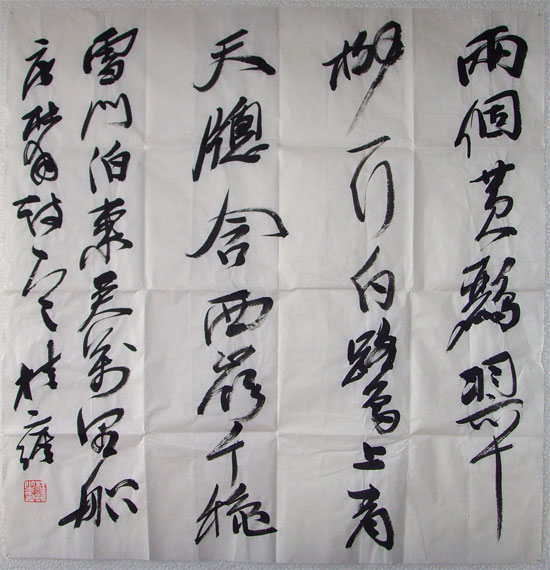 兩個黃鸝翠
柳一行白鷺上青
天牕含西嶺千秋
雪門泊東吳萬里船
唐杜甫詩